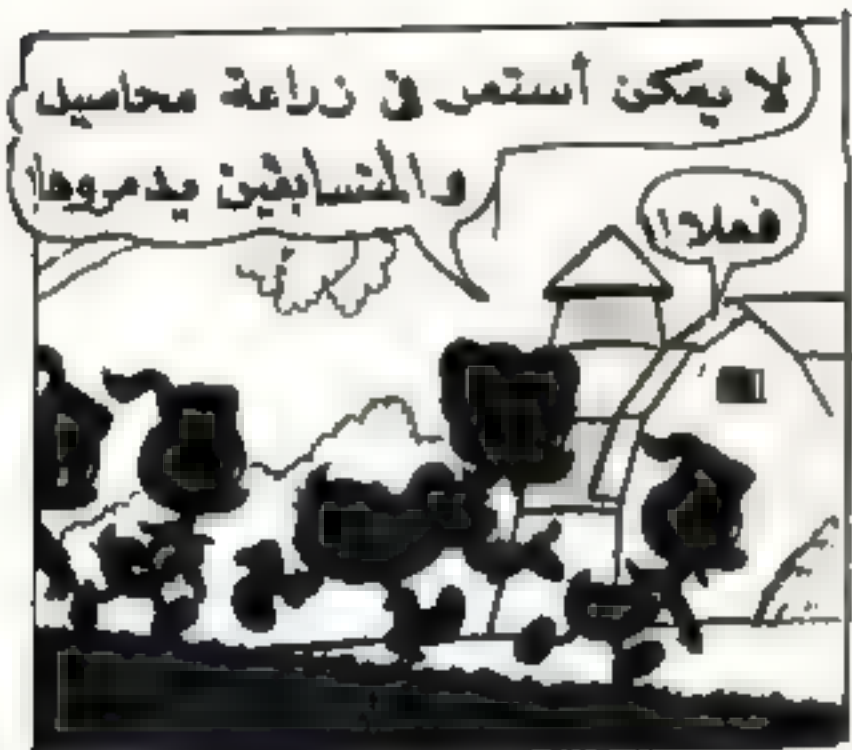 لا يمكن أستمر فى زراعة محاصيل
والمتسابقين يدمروها!
فعلا!!